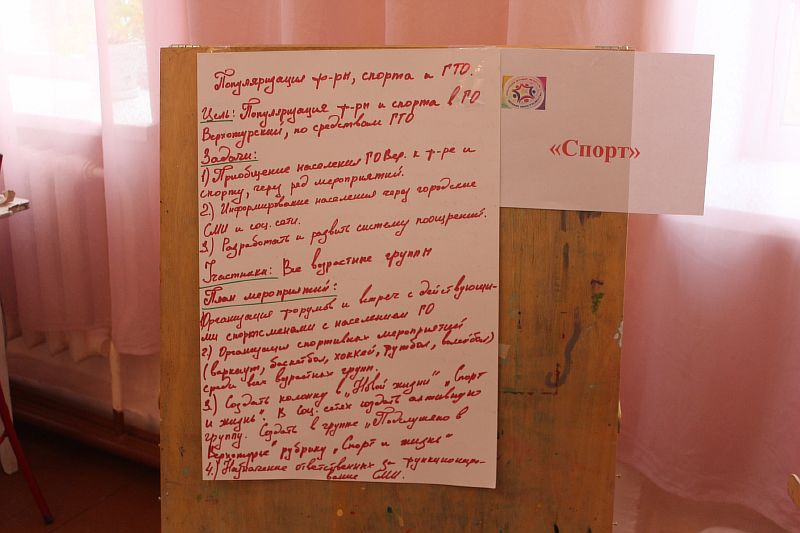 Популяризация ф-ры, спорта и ГТО.
Цель: Популяризация ф-ры и спорта в ГО
Верхотурский, по средствам ГТО
Задачи:
1) Приобщение населения ГО Вер. к ф-ре и
спорту, через ряд мероприятий.
2.) Информирование населения через городские
СМИ и соц. сети.
3.) Разработать и развить систему поощрений.
Участники: Все возрастные группы
План мероприятий:
1) Организация форумов и встреч с действующи-
ми спортсменами с населением ГО
2) Организация спортивных мероприятий
(воркаут, баскетбол, хоккей, футбол, волейбол)
среди всех возрастных групп.
3.) Создать колонку в „Новой жизни" „Спорт
и жизнь". В соц. сетях создать активную
группу. Создать в группе „Подслушано в
Верхотурье" рубрику „Спорт и жизнь"
4.) Назначение ответственных за функциониро-
вание СМИ.
«Спорт»